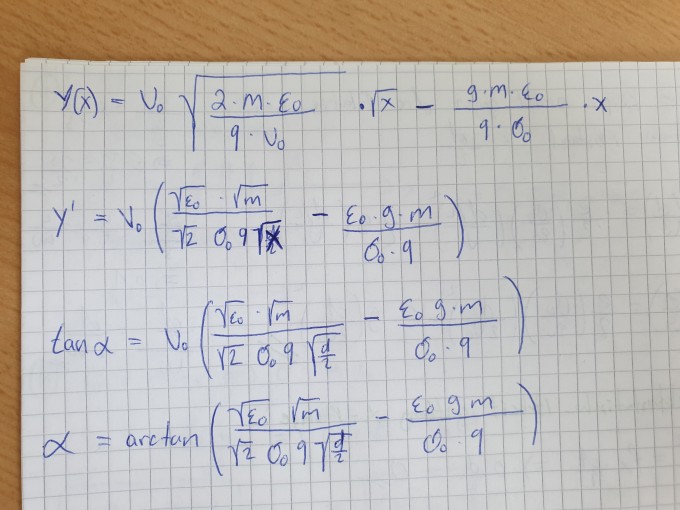 y(x) = v₀ √(2·m·ε₀ / q·v₀) · √x − (g·m·ε₀ / q·σ₀) · x
y' = v₀ (√ε₀ · √m / √2 σ₀ q √x − ε₀·g·m / σ₀·q)
tan α = v₀ (√ε₀ · √m / √2 σ₀ q √(d/2) − ε₀ g·m / σ₀·q)
α = arctan (√ε₀ √m / √2 σ₀ q √(d/2) − ε₀ g m / σ₀·q)